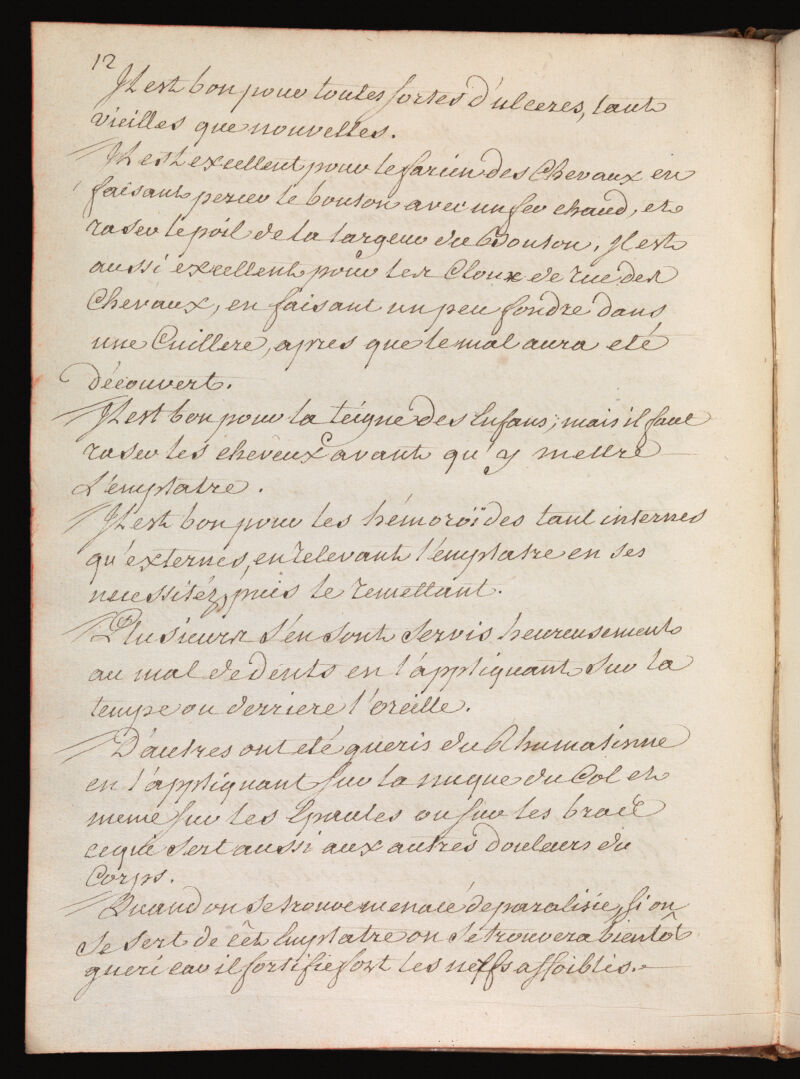 12
Il est bon pour toutes sortes d'ulceres, tant
vieilles que nouvelles.
Il est excellent pour le farcin des Chevaux en
faisant percer le bouton avec un fer chaud, et
raser le poil de la largeur du Bouton, Il est
aussi excellent pour les Cloux de rue des
Chevaux, en faisant un peu fondre dans
une Cuillere, apres que le mal aura eté
découvert.
Il est bon pour la teigne des Enfans; mais il faut
raser les cheveux avant qu'y mettre
L'emplatre.
Il est bon pour les hémoroïdes tant internes
qu'externes, en relevant l'emplatre en ses
necessitéz, puis le remettant.
Plusieurs s'en sont servis heureusement
au mal de dents en l'appliquant sur la
tempe ou derriere l'oreille.
D'autres ont eté gueris du Rhumatisme
en l'appliquant sur la nuque du Col et
meme sur les Epaules ou sur les bras
ce qui sert aussi aux autres douleurs du
Corps.
Quand on se trouve menacé de paralisie, si on
se sert de cet Emplatre on se trouvera bientôt
gueri car il fortifie fort les nerfs affoiblis.